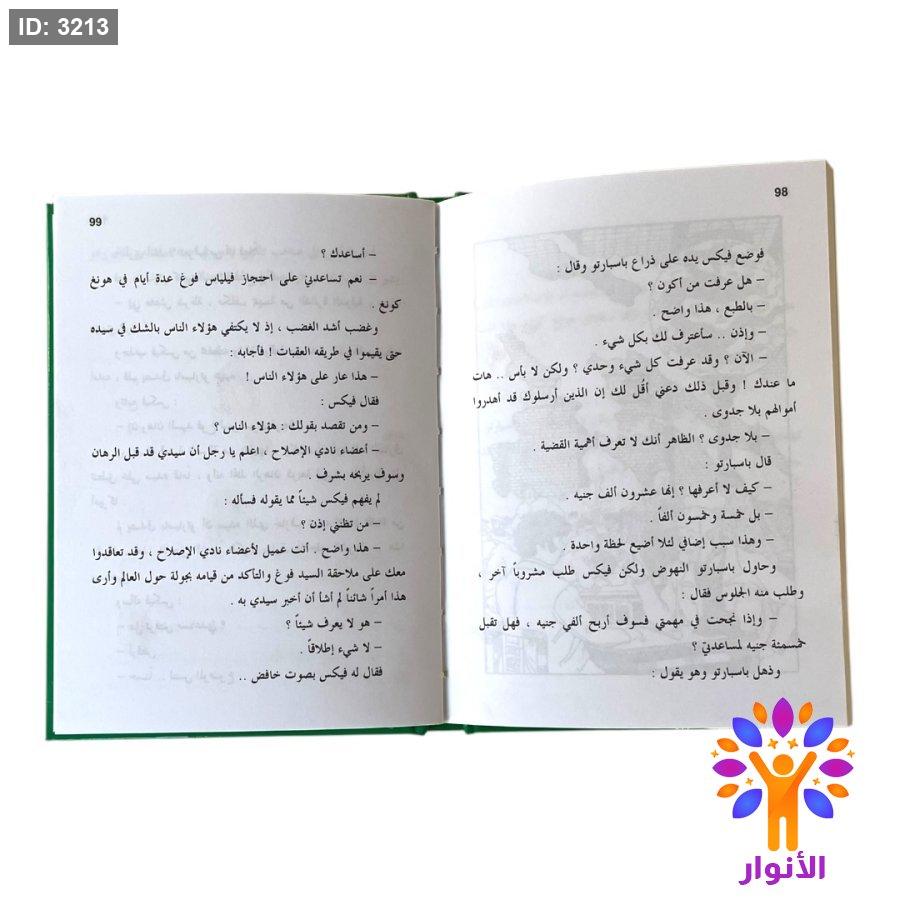 ID: 3213
98
فوضع فيكس يده على ذراع باسبارتو وقال :
– هل عرفت من أكون ؟
– بالطبع ، هذا واضح .
– وإذن .. سأعترف لك بكل شيء .
– الآن ؟ وقد عرفت كل شيء وحدي ؟ ولكن لا بأس .. هات
ما عندك ! وقبل ذلك دعني أقُل لك إن الذين أرسلوك قد أهدروا
أموالهم بلا جدوى .
– بلا جدوى ؟ الظاهر أنك لا تعرف أهمية القضية .
قال باسبارتو :
– كيف لا أعرفها ؟ إنها عشرون ألف جنيه .
– بل خمسة وخمسون ألفاً .
– وهذا سبب إضافي لئلا أضيع لحظة واحدة .
وحاول باسبارتو النهوض ولكن فيكس طلب مشروباً آخر ،
وطلب منه الجلوس فقال :
– وإذا نجحت في مهمتي فسوف أربح ألفي جنيه ، فهل تقبل
خمسمئة جنيه لمساعدتي ؟
وذهل باسبارتو وهو يقول :
99
– أساعدك ؟
– نعم تساعدني على احتجاز فيلياس فوغ عدة أيام في هونغ
كونغ .
وغضب أشد الغضب ، إذ لا يكتفي هؤلاء الناس بالشك في سيده
حتى يقيموا في طريقه العقبات ! فأجابه :
– هذا عار على هؤلاء الناس !
فقال فيكس :
– ومن تقصد بقولك : هؤلاء الناس ؟
– أعضاء نادي الإصلاح ، اعلم يا رجل أن سيدي قد قبل الرهان
وسوف يربحه بشرف .
لم يفهم فيكس شيئاً مما يقوله فسأله :
– من تظنني إذن ؟
– هذا واضح . أنت عميل لأعضاء نادي الإصلاح ، وقد تعاقدوا
معك على ملاحقة السيد فوغ والتأكد من قيامه بجولة حول العالم وأرى
هذا أمراً شائناً لم أشأ أن أخبر سيدي به .
– هو لا يعرف شيئاً ؟
– لا شيء إطلاقاً .
فقال له فيكس بصوت خافض ..
الأنوار